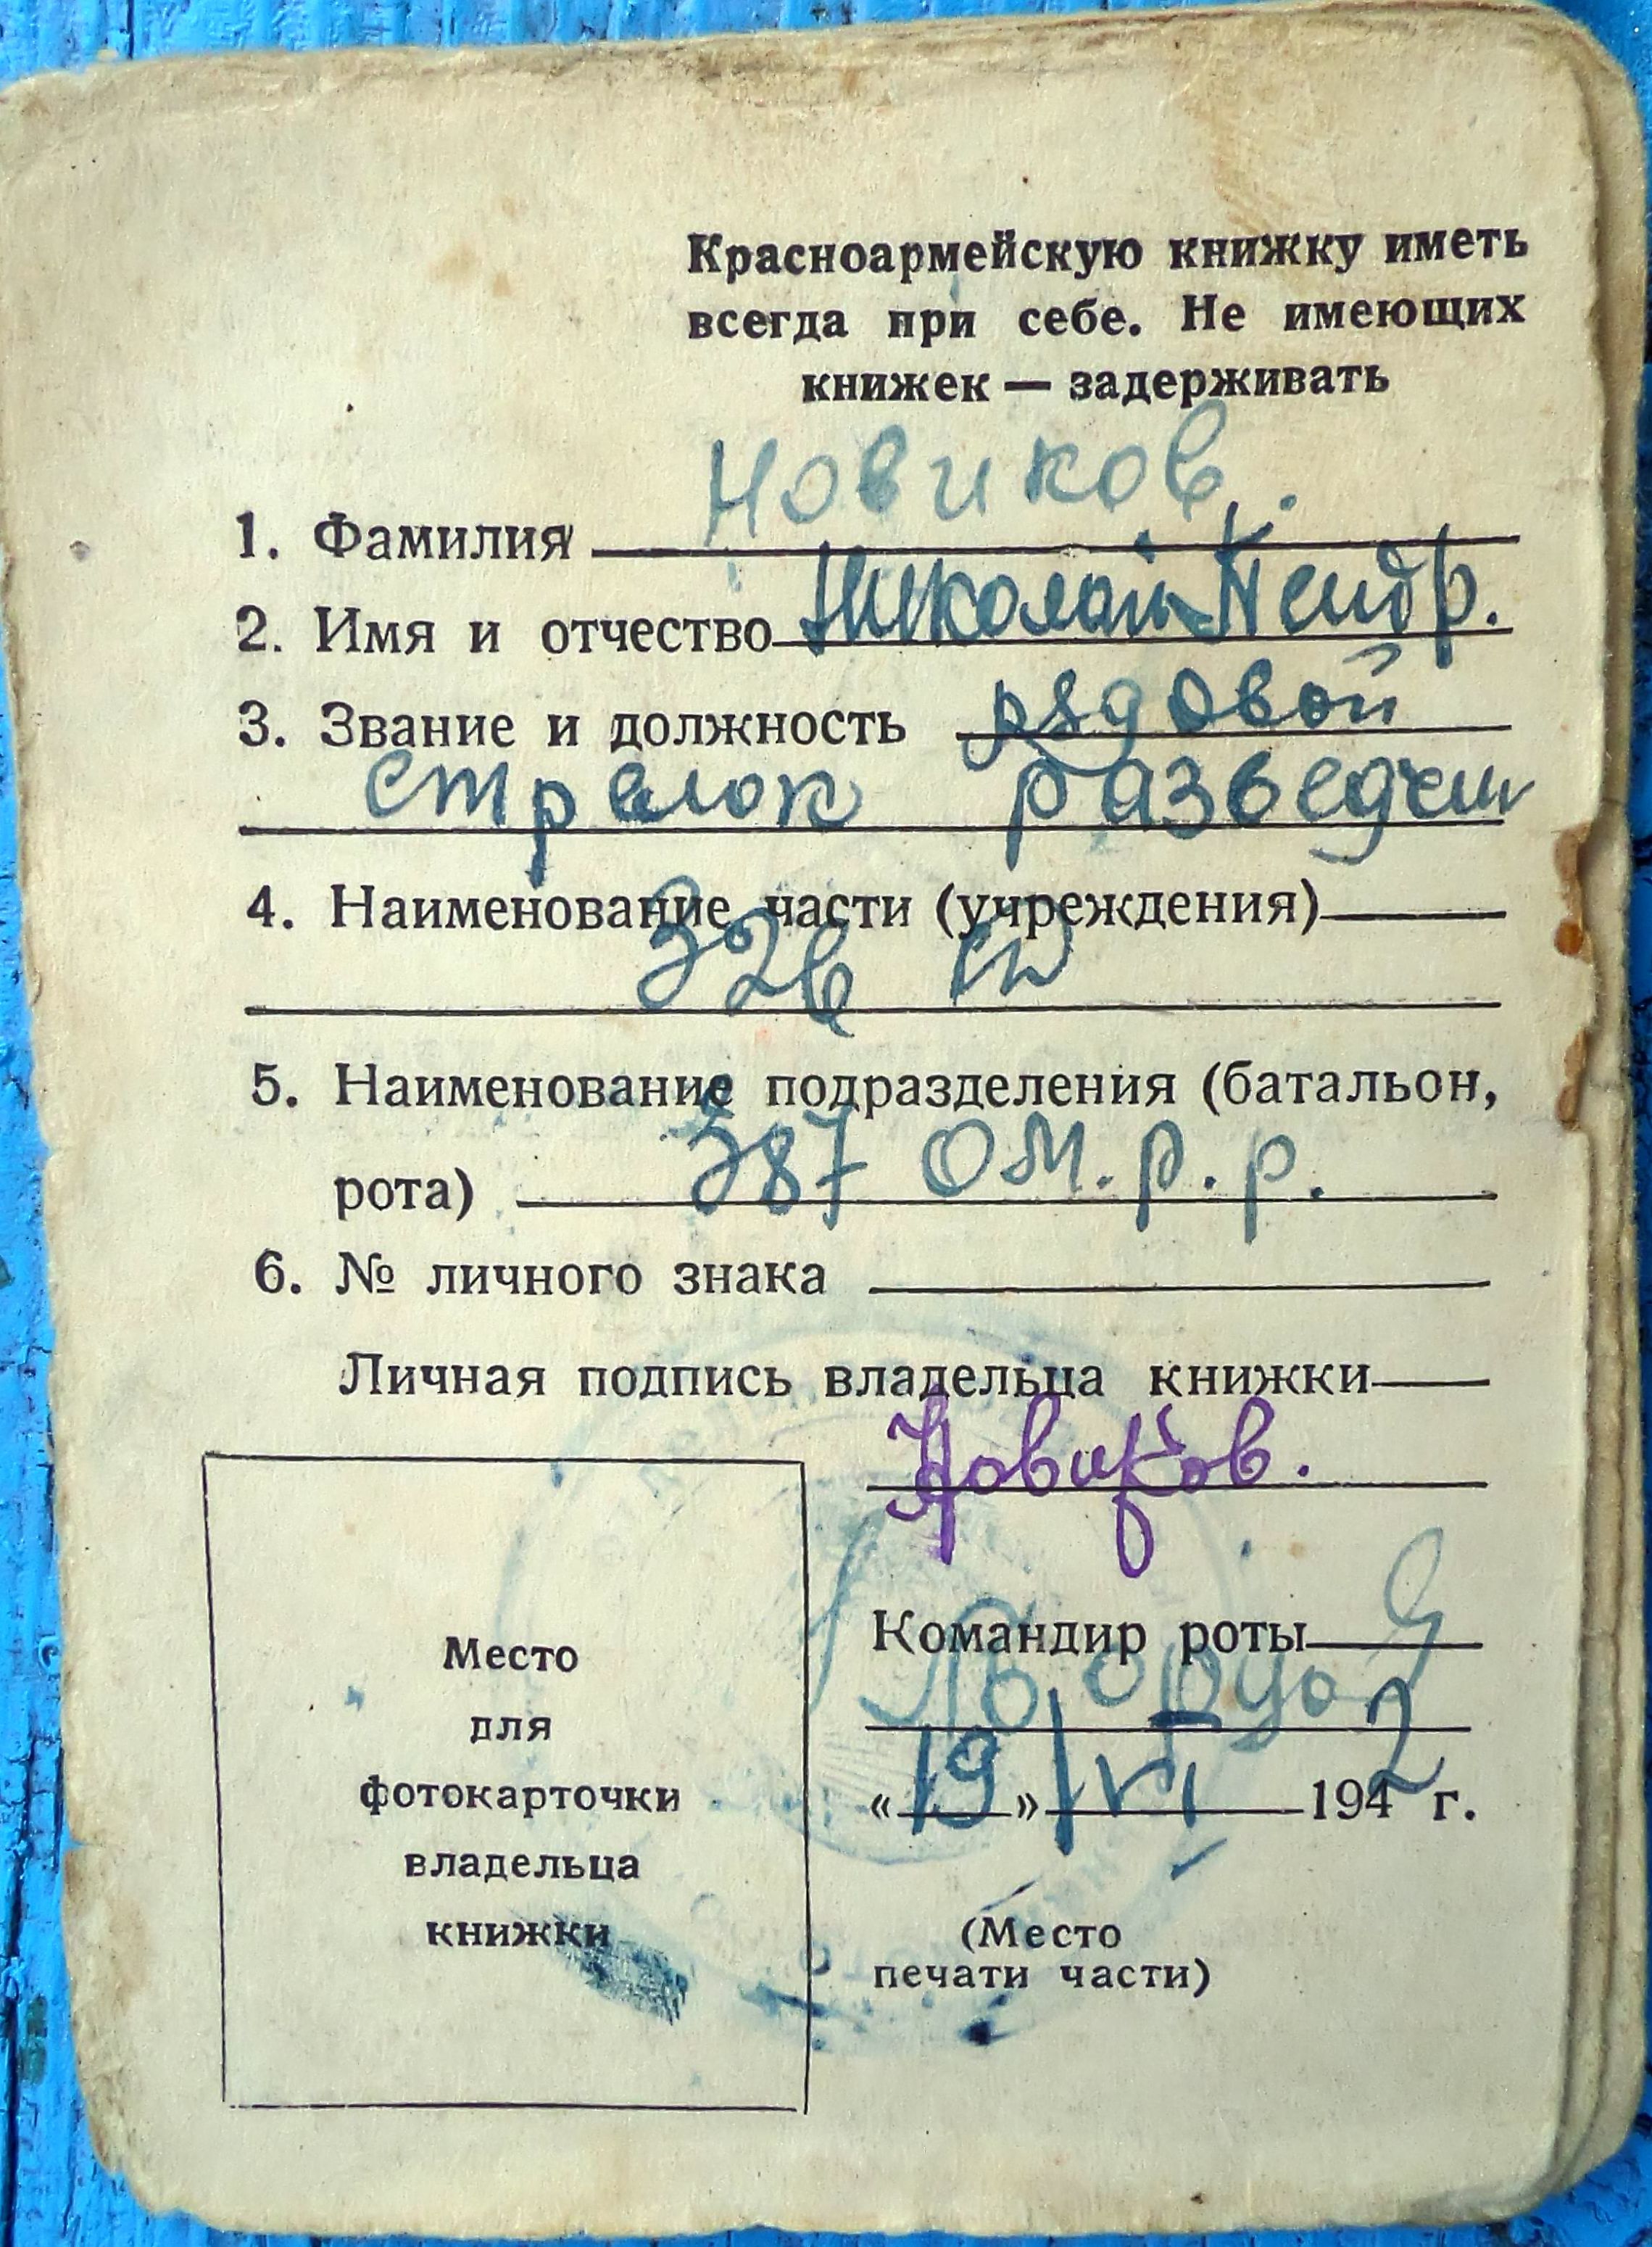 Красноармейскую книжку иметь
всегда при себе. Не имеющих
книжек — задерживать
Новиков.
1. Фамилия
2. Имя и отчество Николай
3. Звание и должность рядовой
стрелок разведчи
4. Наименование части (учреждения)
326 сд
5. Наименование подразделения (батальон,
387 ом.р.р.
рота)
6. № личного знака
Личная подпись владельца книжки
Новиков.
Место
для
фотокарточки
владельца
книжки
Командир роты
«19» VI 1942 г.
(Место
печати части)